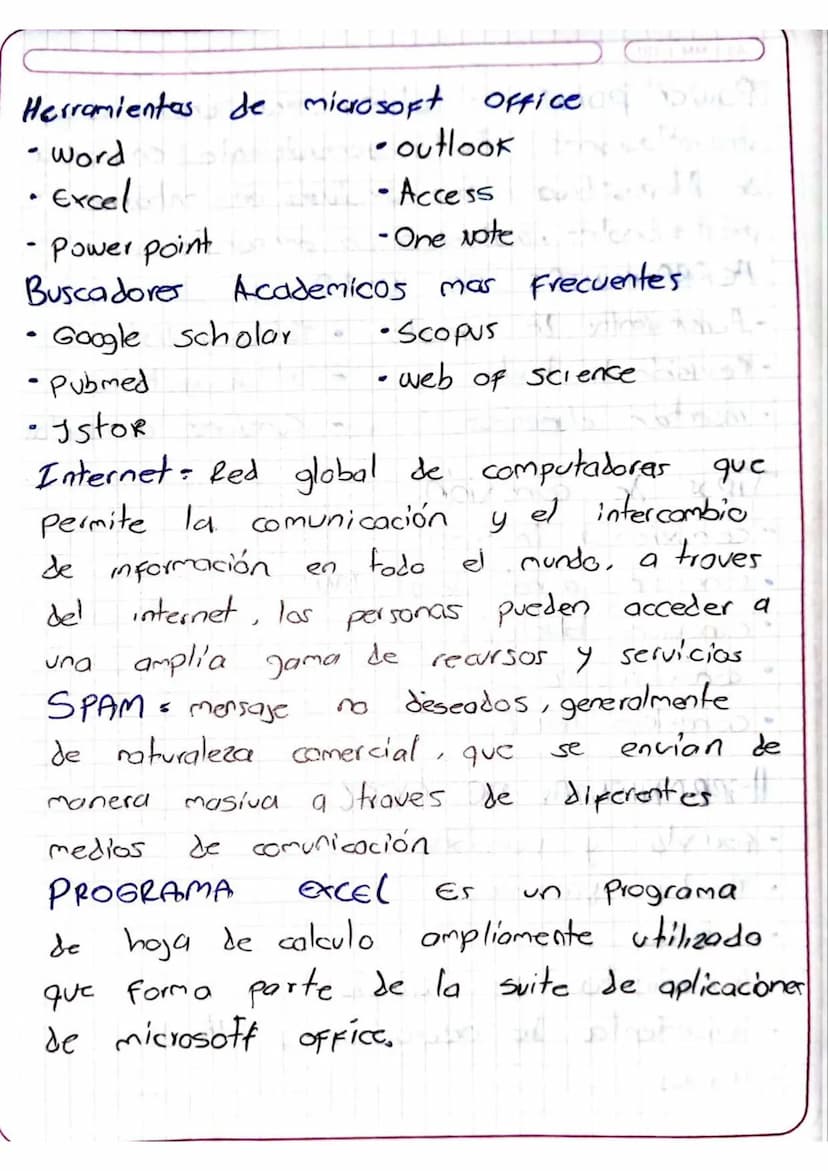 Herramientas de microsoft office
- Word
• outlook
• Excel
- Access
- Power point
- One Note
Buscadores Academicos mas Frecuentes
• Google scholar
• Scopus
- Pubmed
• web of science
• Jstor
Internet = Red global de computadoras que
permite la comunicación y el intercambio
de información en todo el mundo, a traves
del internet, las personas pueden acceder a
una amplia gama de recursos y servicios
SPAM = mensaje no deseados, generalmente
de naturaleza comercial, que se envian de
manera masiva a traves de diferentes
medios de comunicación
PROGRAMA EXCEL Es un Programa
de hoja de calculo ampliamente utilizado
que forma parte de la suite de aplicaciones
de microsoft office.